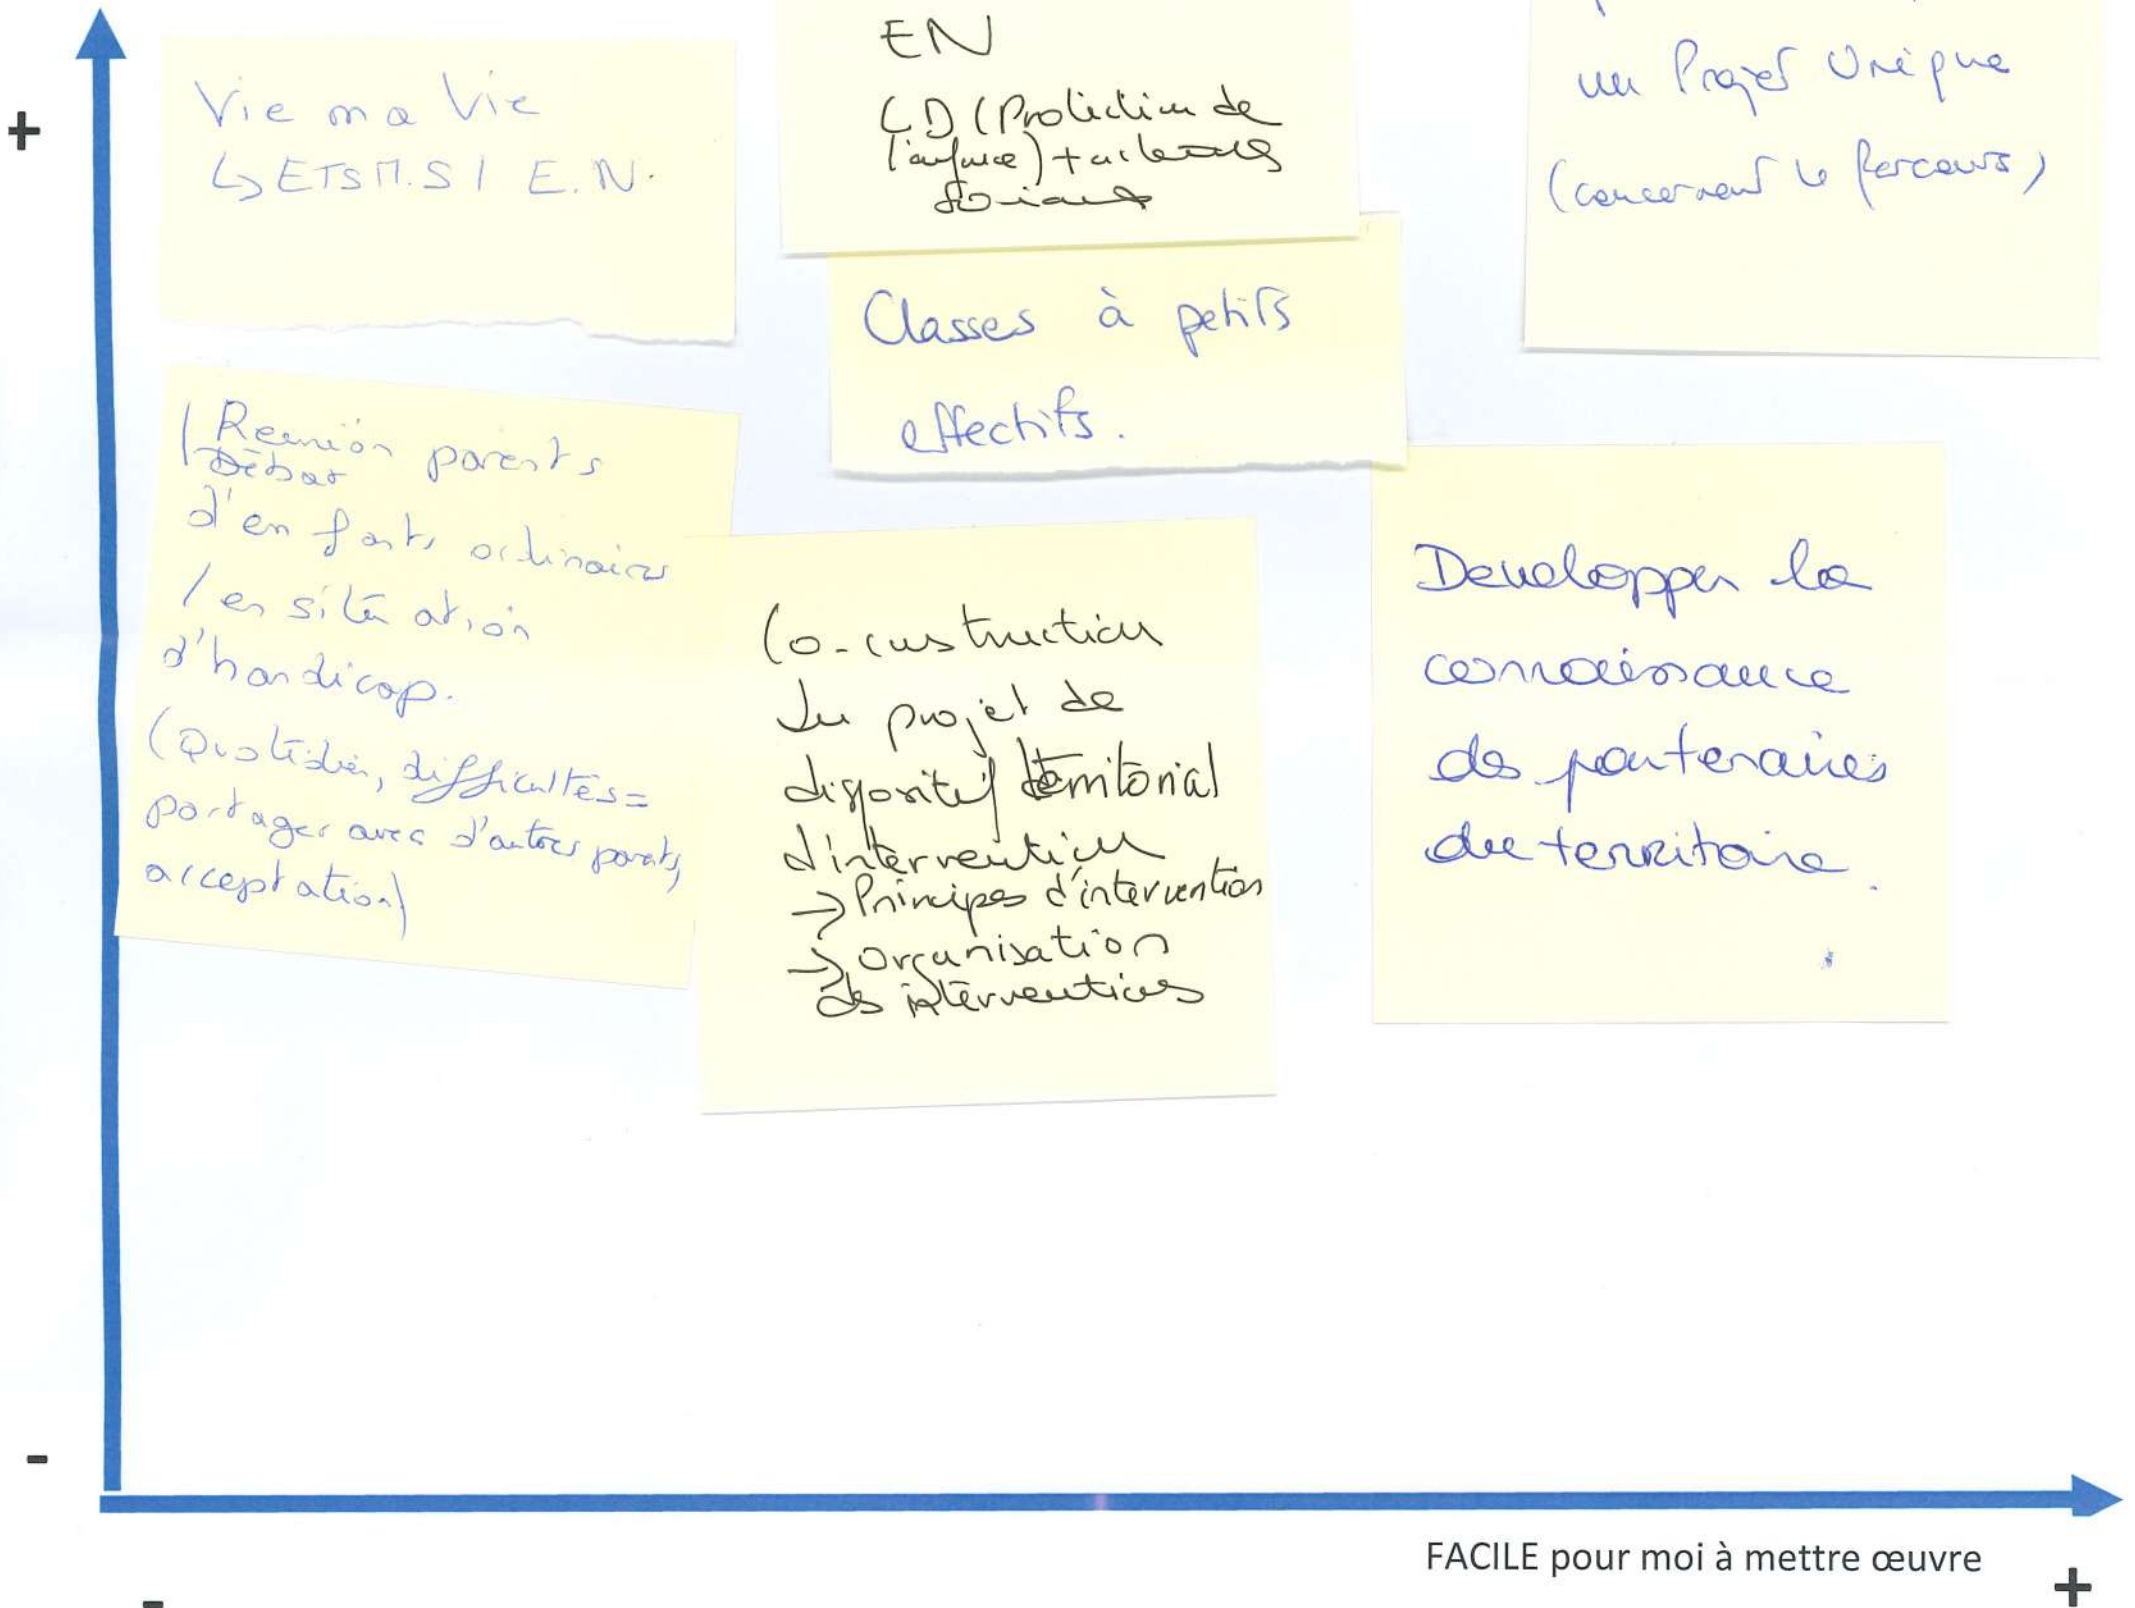 +
Vie ma Vie
↳ ETS M.S / E.N.
EN
CD (Protection de
l'enfance) + acteurs
sociaux
un Projet Unique
(concernant le Parcours)
Classes à petits
effectifs.
/ Reunion parents
Débat
d'enfants ordinaires
/ en situation
d'handicap.
(Quotidien, difficultés =
partager avec d'autres parents,
acceptation)
Co-construction
du projet de
dispositif territorial
d'intervention
→ Principes d'intervention
→ Organisation
des interventions
Developper la
connaissance
des partenaires
du territoire.
-
FACILE pour moi à mettre œuvre
+
-